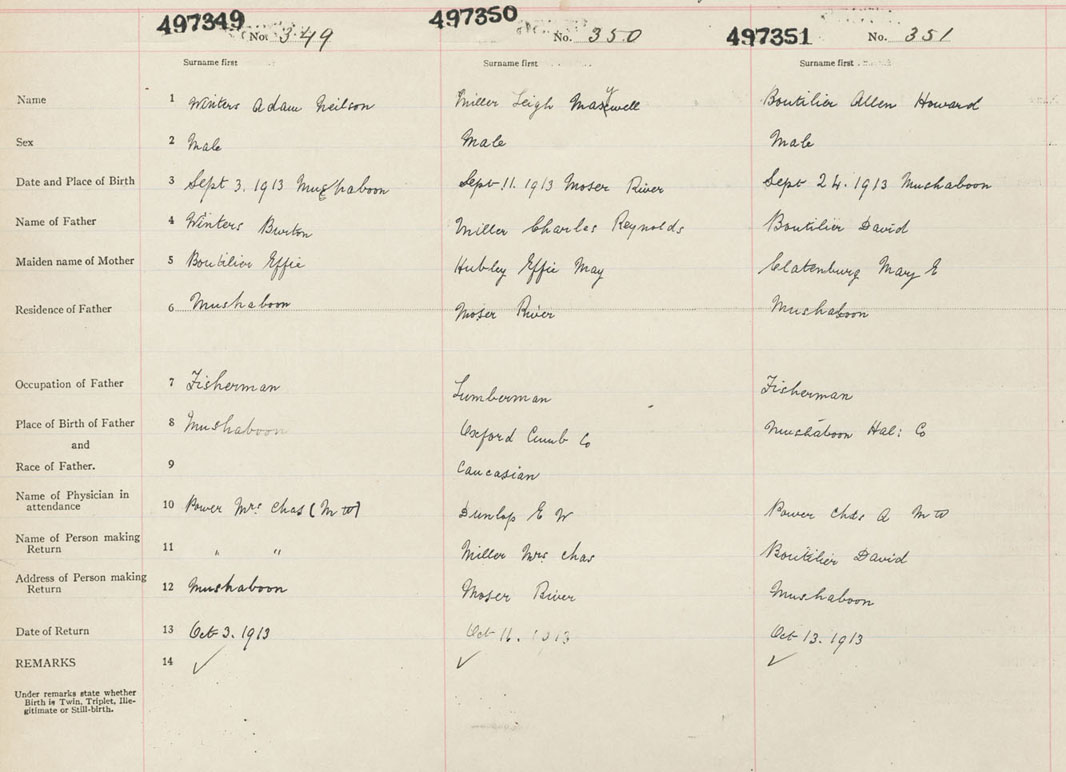 497349 No. 349 497350 No. 350 497351 No. 351
Surname first Surname first Surname first
Name 1 Winters Adam Neilson Miller Leigh Maxwell Boutilier Allen Howard
Sex 2 Male Male Male
Date and Place of Birth 3 Sept 3. 1913 Mushaboon Sept 11. 1913 Moser River Sept 24. 1913 Mushaboon
Name of Father 4 Winters Burton Miller Charles Reynolds Boutilier David
Maiden name of Mother 5 Boutilier Effie Hubley Effie May Clatenburg Mary E
Residence of Father 6 Mushaboon Moser River Mushaboon
Occupation of Father 7 Fisherman Lumberman Fisherman
Place of Birth of Father 8 Mushaboon Oxford Cumb Co Mushaboon Hal: Co
and
Race of Father. 9 Caucasian
Name of Physician in
attendance 10 Power Mrs. Chas (M W) Dunlop E W Power Chas A M W
Name of Person making
Return 11 " " Miller Mrs. Chas Boutilier David
Address of Person making
Return 12 Mushaboon Moser River Mushaboon
Date of Return 13 Oct 3. 1913 Oct 11. 1913 Oct 13. 1913
REMARKS 14 ✓ ✓ ✓
Under remarks state whether
Birth is Twin, Triplet, Ille-
gitimate or Still-birth.